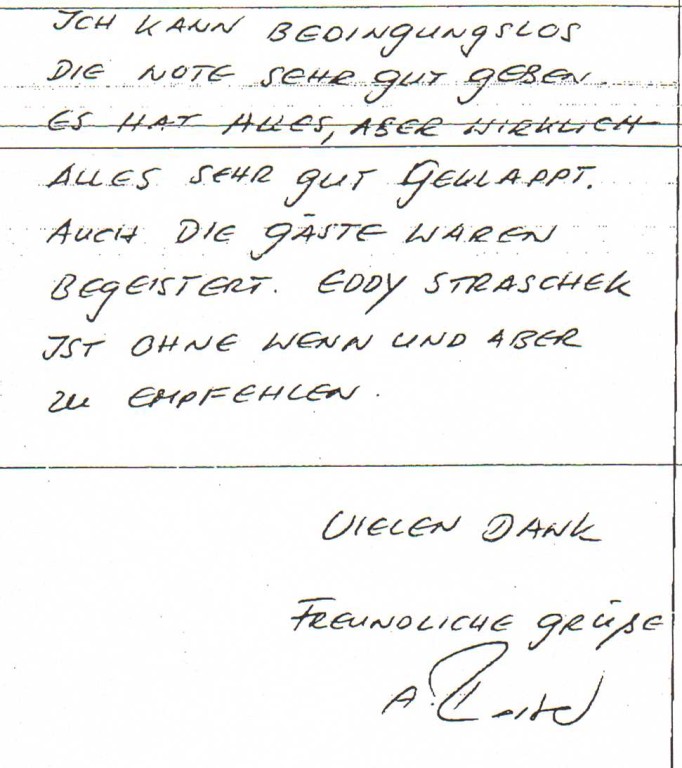 ICH KANN BEDINGUNGSLOS
DIE NOTE SEHR GUT GEBEN.
ES HAT ALLES, ABER WIRKLICH
ALLES SEHR GUT GEKLAPPT.
AUCH DIE GÄSTE WAREN
BEGEISTERT. EDDY STRASCHEK
IST OHNE WENN UND ABER
ZU EMPFEHLEN.
VIELEN DANK
FREUNDLICHE GRÜßE
A.